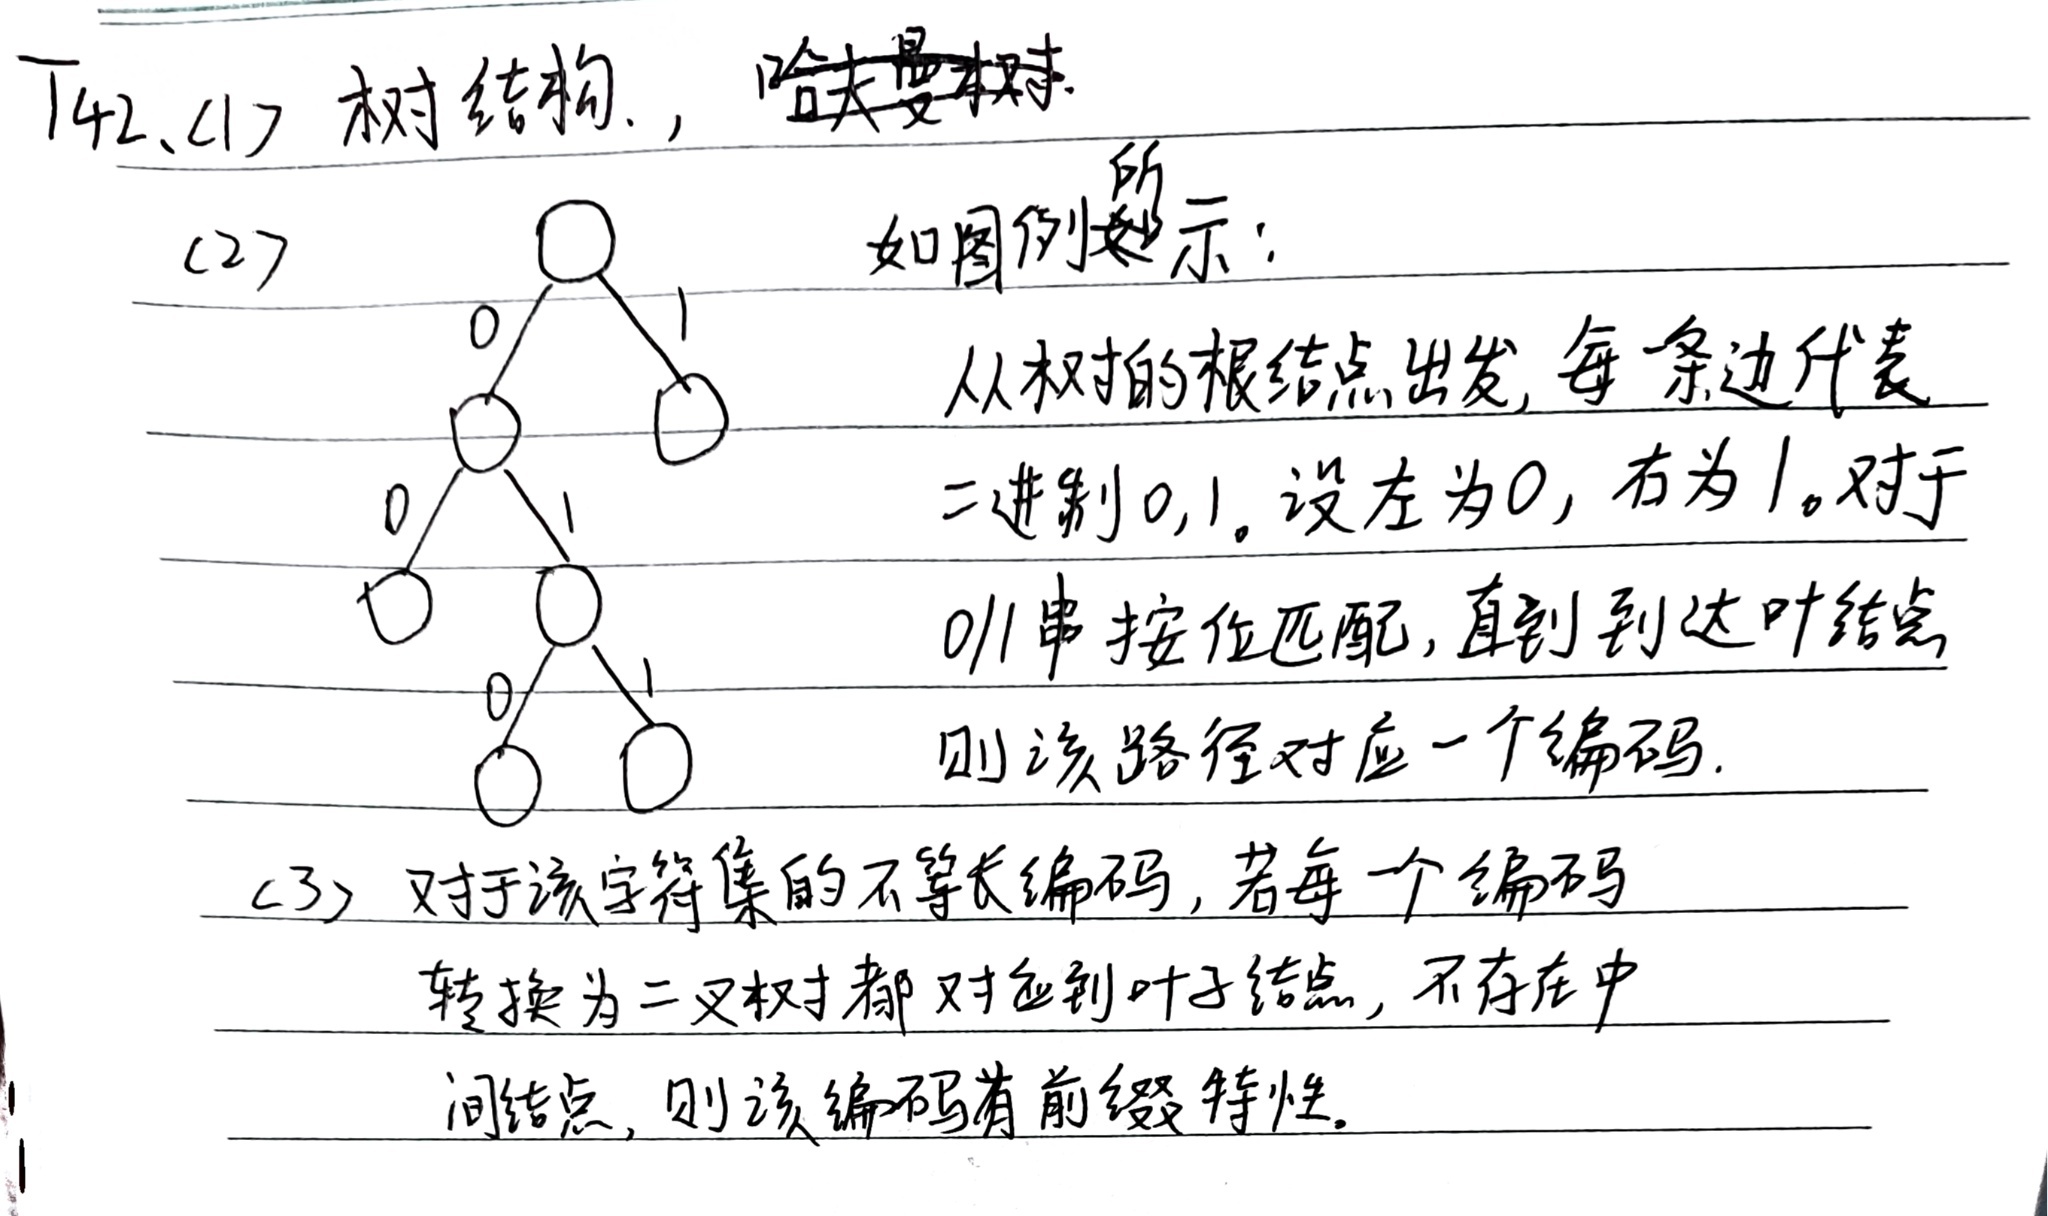 T42、<1> 树结构.， 哈夫曼树.
<2> 如图例所示：
0 1
从树的根结点出发，每一条边代表
0 1
二进制0,1。设左为0，右为1。对于
0/1串按位匹配，直到到达叶结点
0 1
则该路径对应一个编码.
<3> 对于该字符集的不等长编码，若每一个编码
转换为二叉树都对应到叶子结点，不存在中
间结点，则该编码有前缀特性。